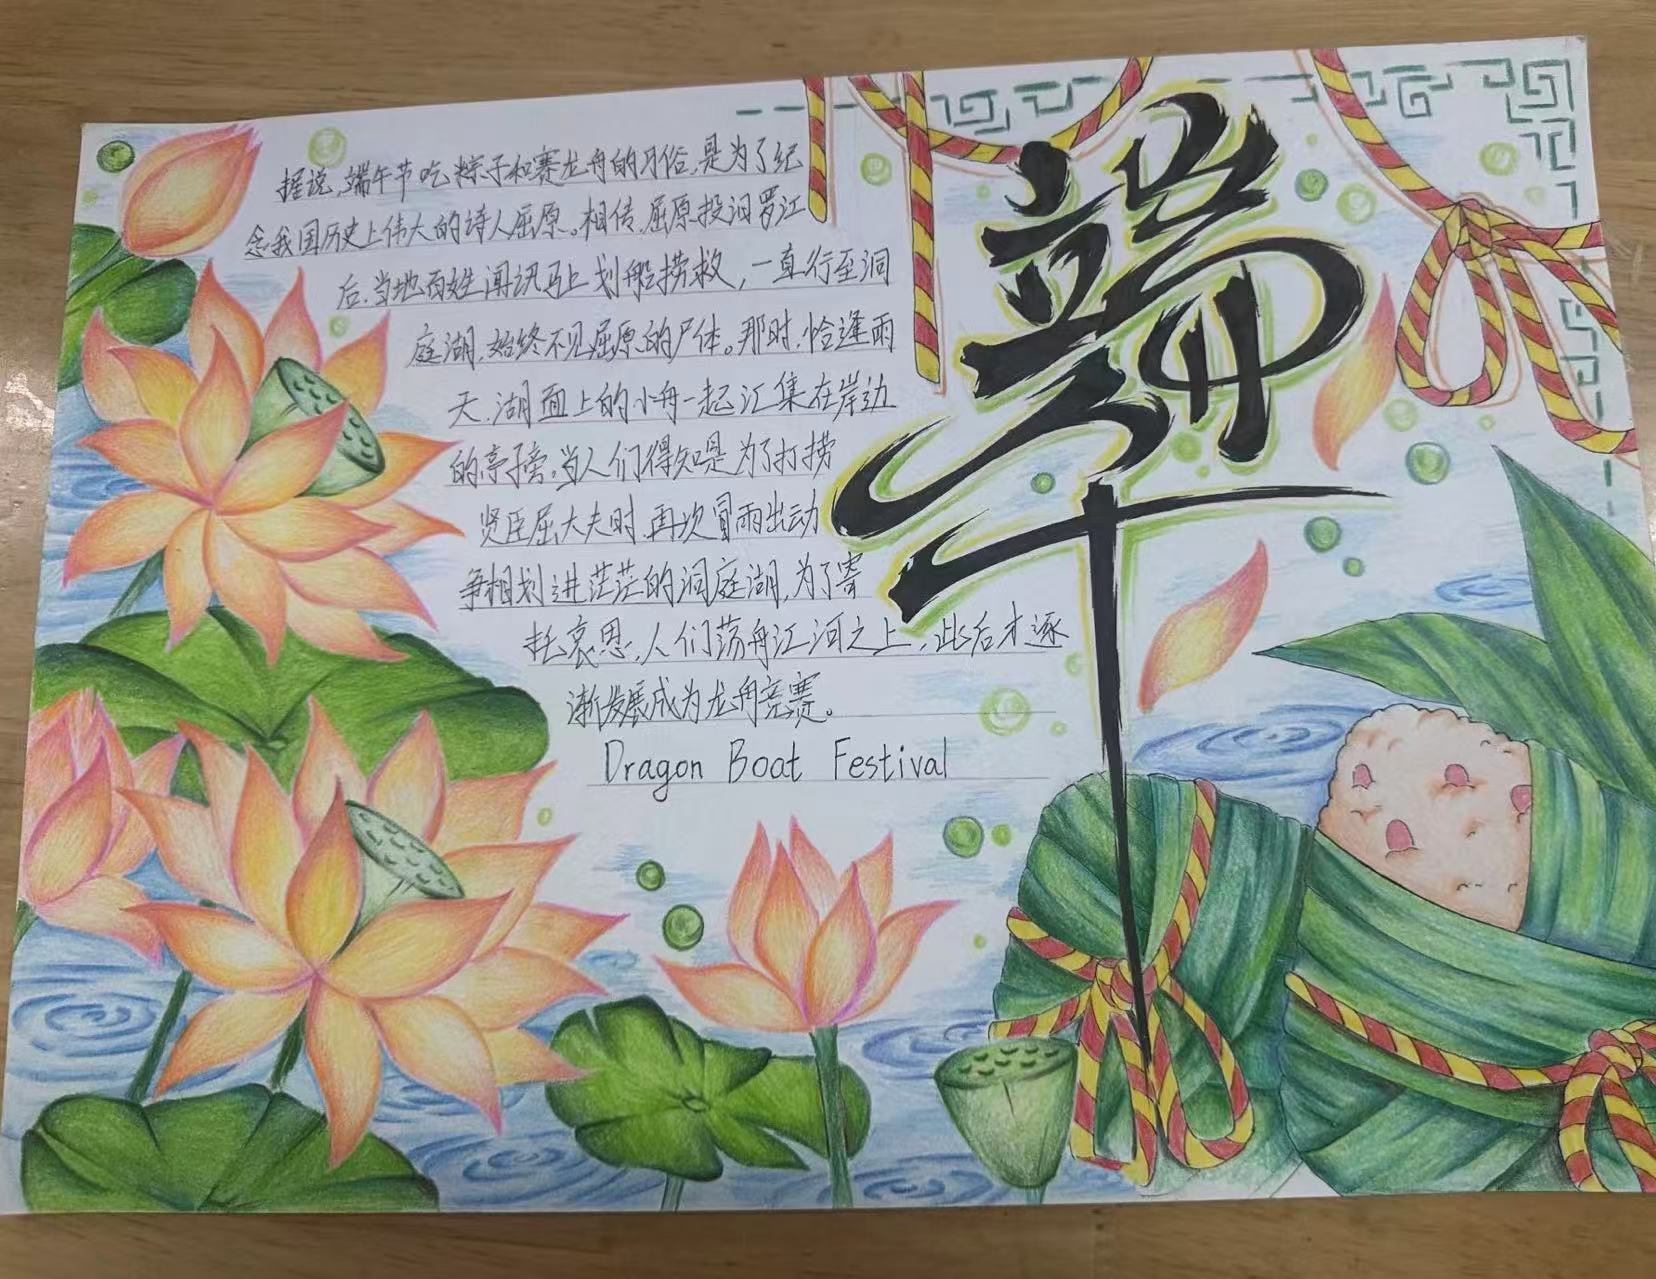 据说,端午节吃粽子和赛龙舟的习俗,是为了纪
念我国历史上伟大的诗人屈原。相传,屈原投汨罗江
后,当地百姓闻讯马上划船捞救,一直行至洞
庭湖,始终不见屈原的尸体。那时,恰逢雨
天,湖面上的小舟一起汇集在岸边
的亭子旁。当人们得知是为了打捞
贤臣屈大夫时,再次冒雨出动
争相划进茫茫的洞庭湖,为了寄
托哀思,人们荡舟江河之上,此后才逐
渐发展成为龙舟竞赛。
Dragon Boat Festival
端午